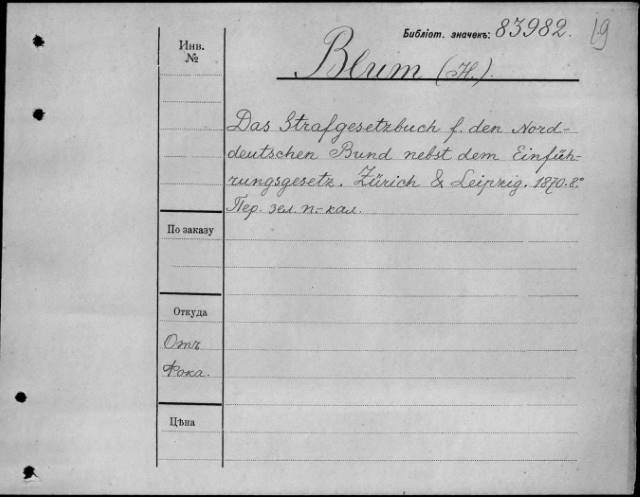 Библіот. значекъ: 83982. 19
Инв.
№
Blum (H.).
Das Strafgesetzbuch f. den Nord-
deutschen Bund nebst dem Einfüh-
rungsgesetz. Zürich & Leipzig. 1870. 8.°
Пер. зел. п.-кал.
По заказу
Откуда
Отъ
Фока.
Цѣна